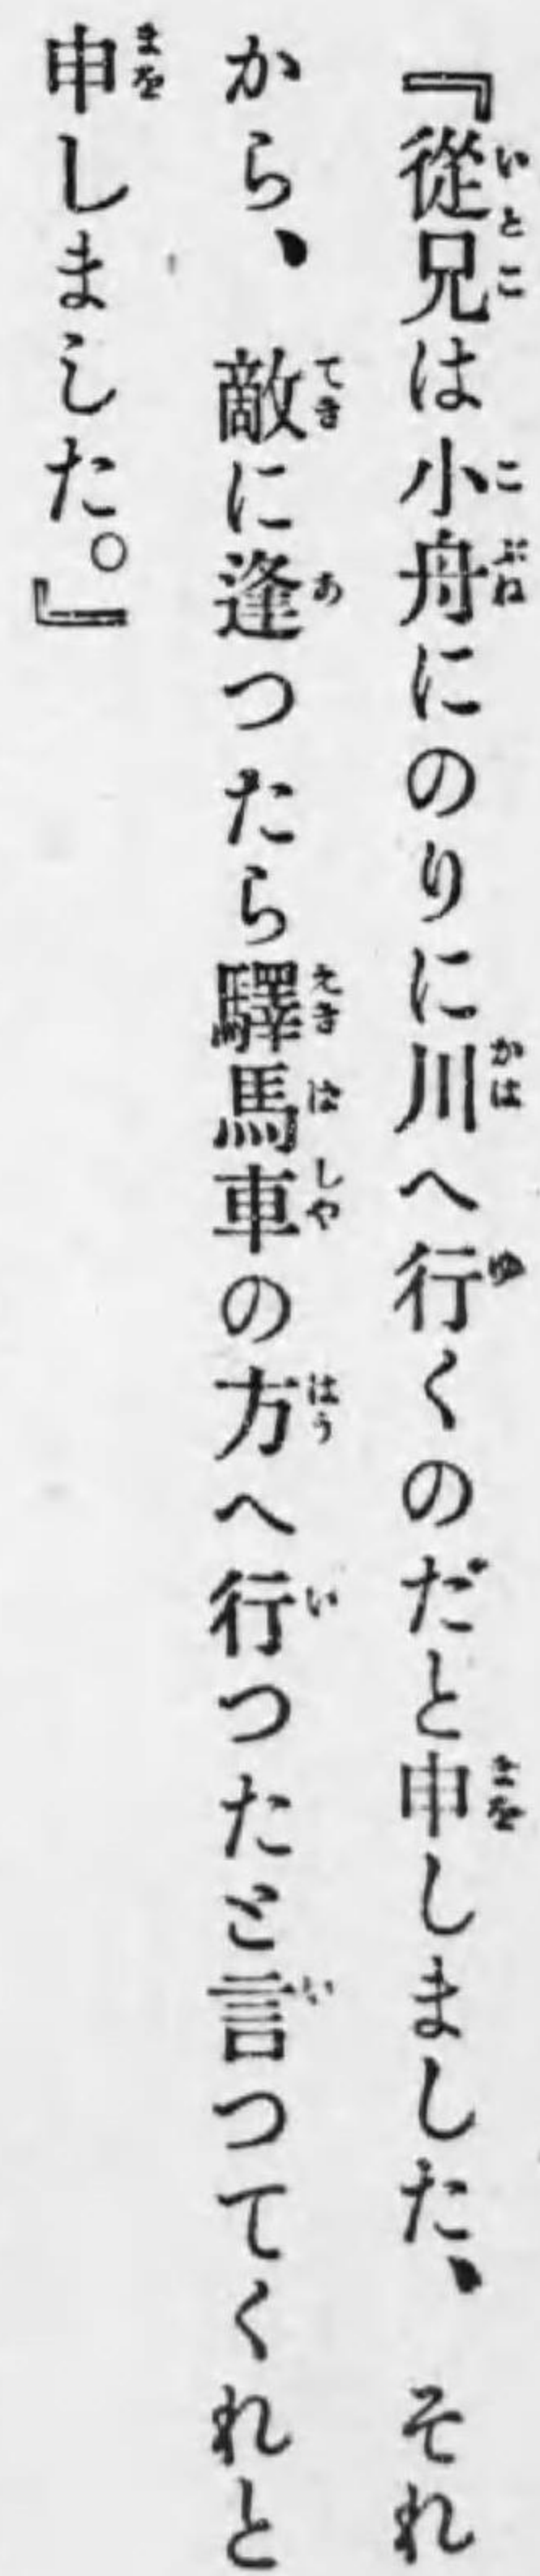 『從兄は小舟にのりに川へ行くのだと申しました、それ
から、敵に逢つたら驛馬車の方へ行つたと言つてくれと
申しました。』